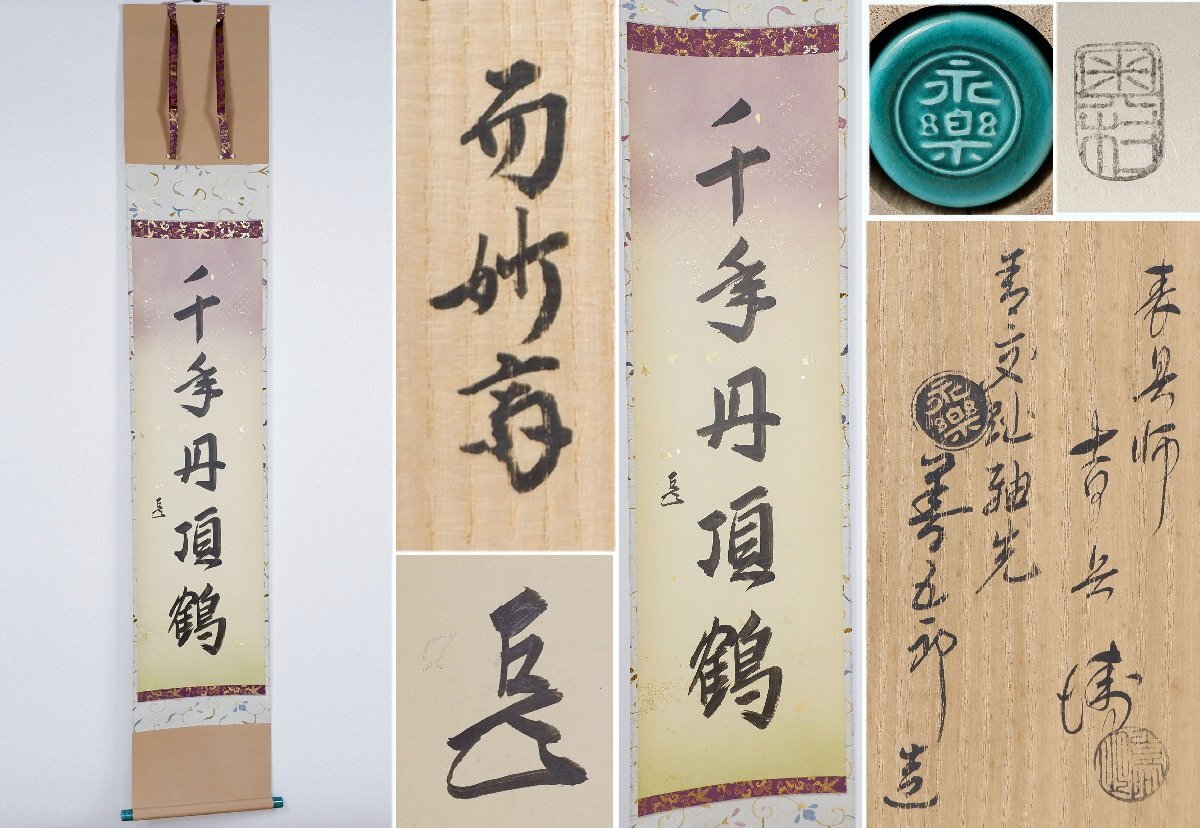 千年丹頂鶴
而妙斎
千年丹頂鶴
永樂
表具師
吉兵衛
青交趾軸先
永樂
善五郎
造